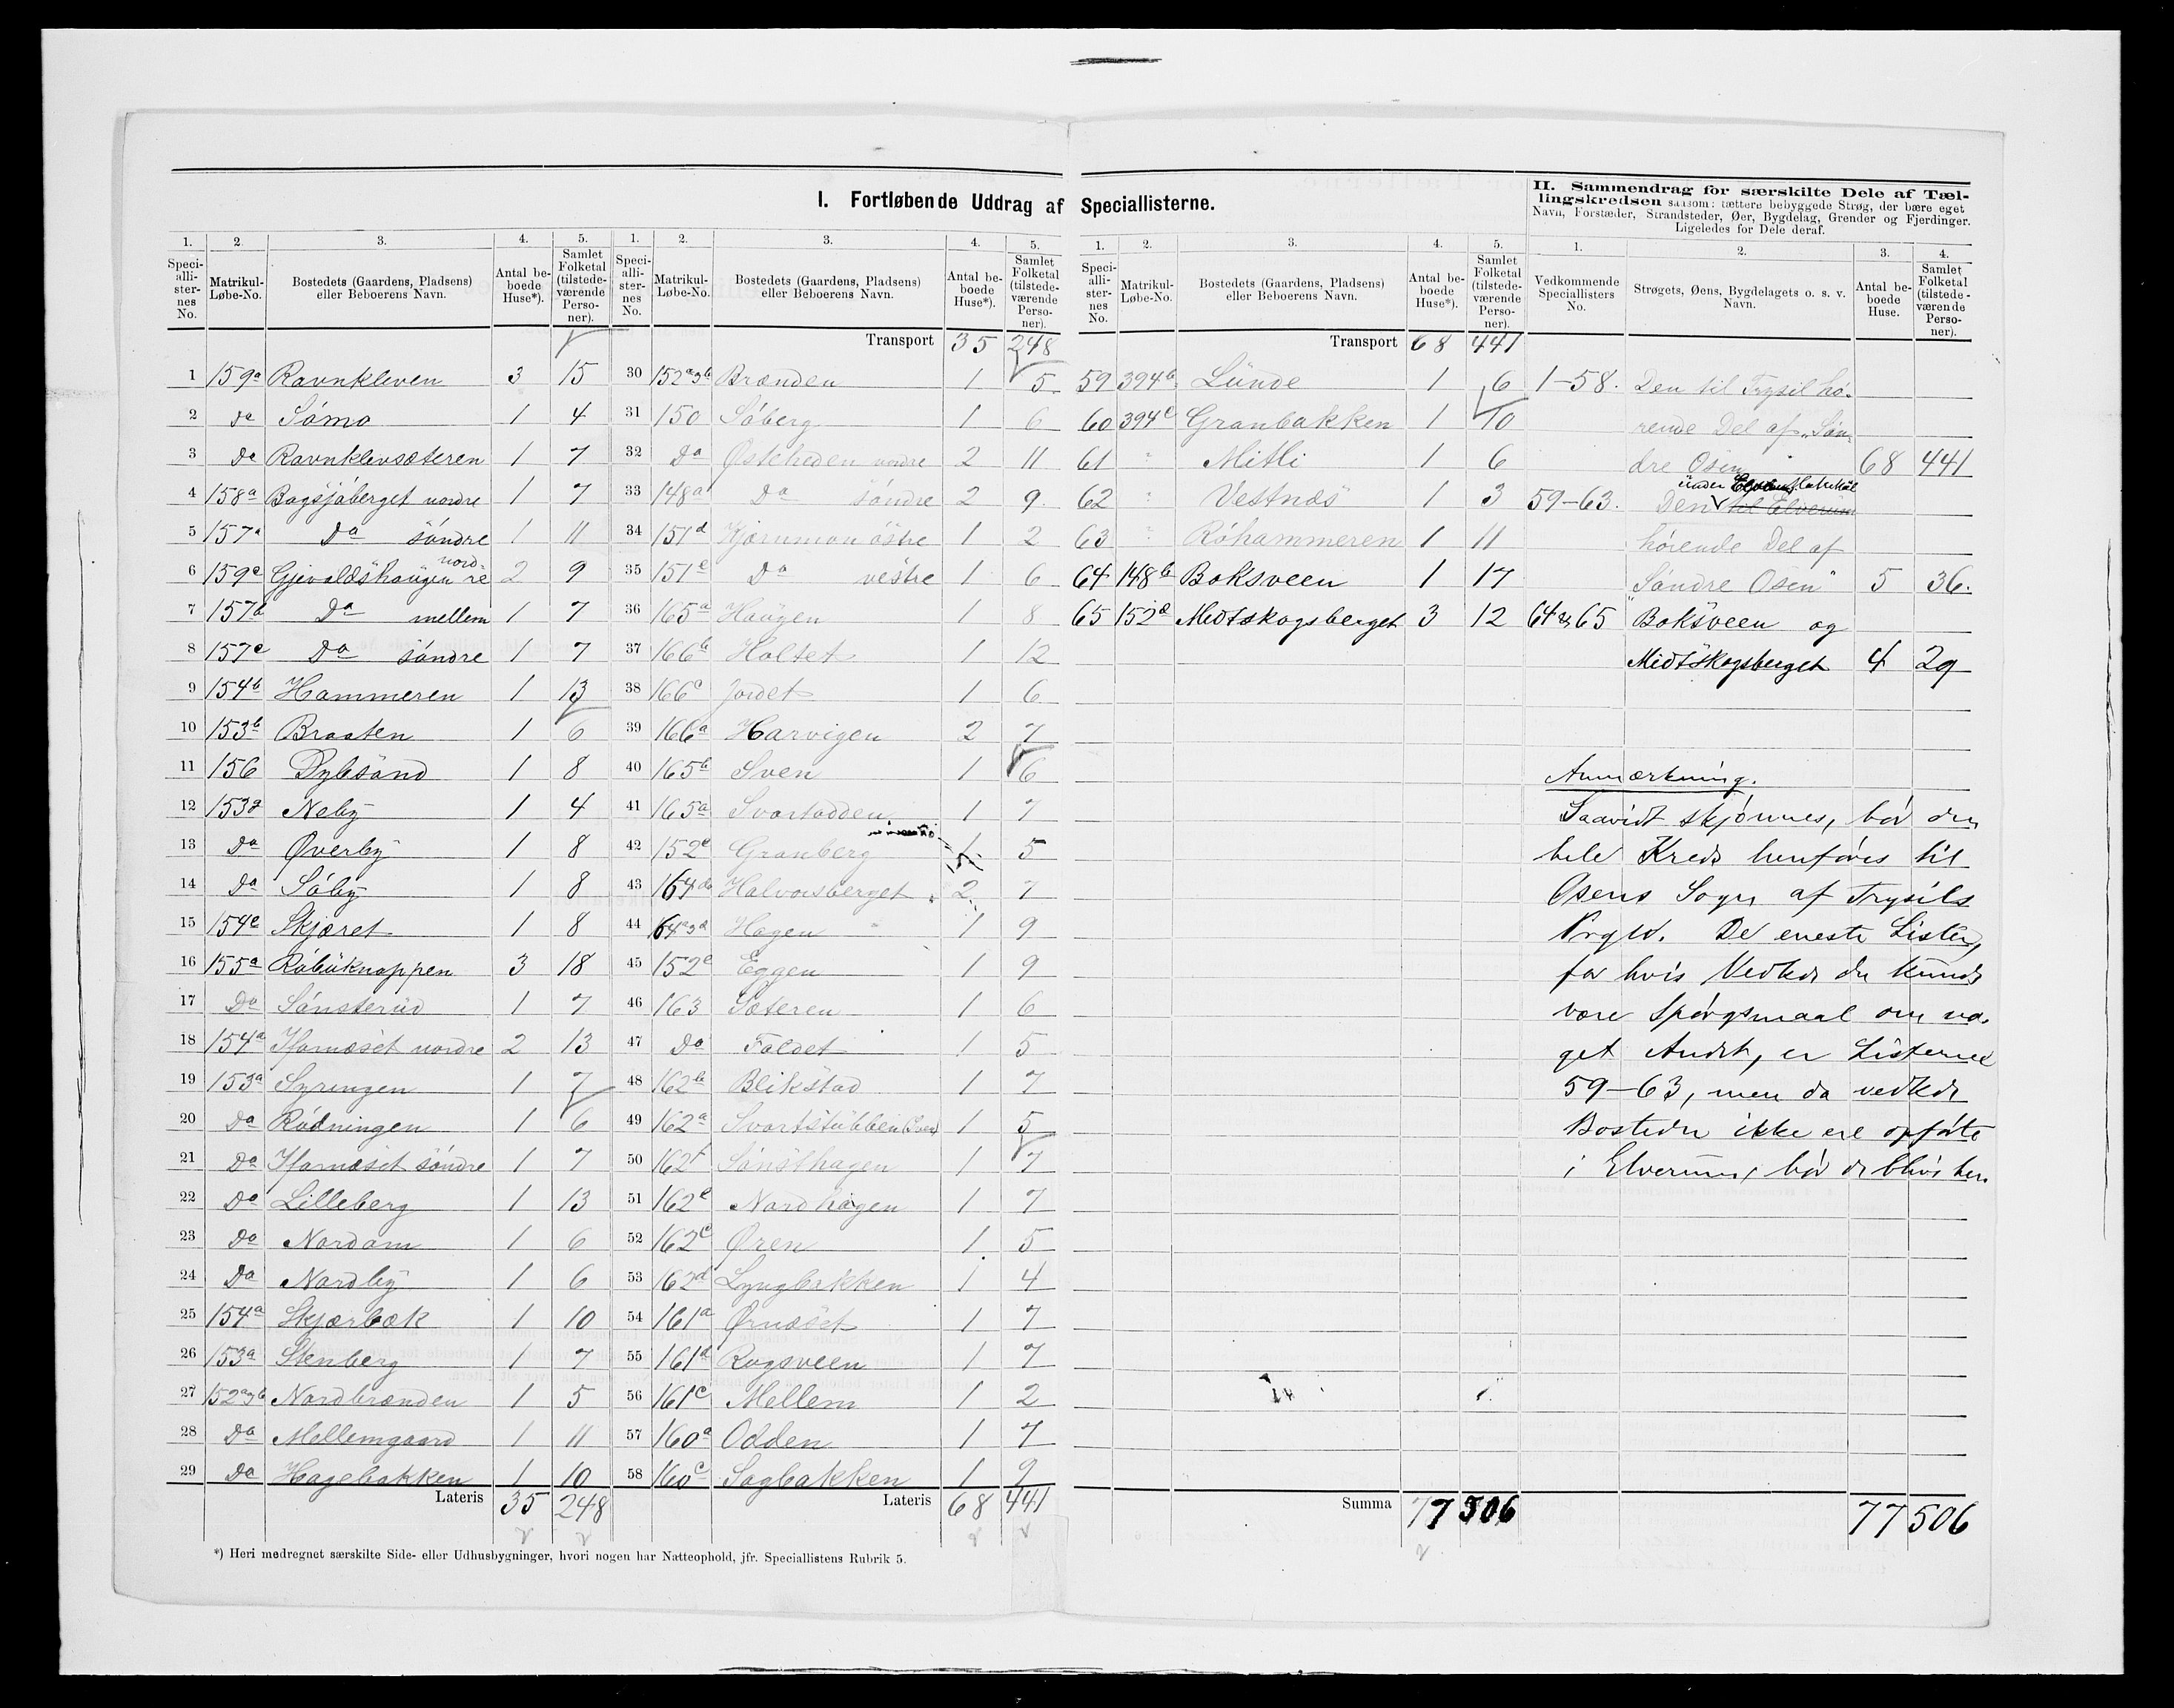 I. Fortløbende Uddrag af Speciallisterne.
II. Sammendrag for særskilte Dele af Tæl-
lingskredsen saasom: tættere bebyggede Strøg, der bære eget
Navn, Forstæder, Strandsteder, Øer, Bygdelag, Grender og Fjerdinger.
Ligeledes for Dele deraf.
1. 2. 3. 4. 5.
Speci-alli-ster-nes No. Matrikul-Løbe-No. Bostedets (Gaardens, Pladsens) eller Beboerens Navn. Antal be-boede Huse*). Samlet Folketal (tilstede-værende Perso-ner).
1 159a Ravnkleven 3 15
2 do Sömo 1 4
3 Do Ravnklevsæteren 1 7
4 158a Bagsjöberget nordre 1 7
5 157a Do söndre 1 11
6 159c Gjevaldshaugen nord-re 2 9
7 157b Do mellem 1 7
8 157c Do söndre 1 7
9 154b Hammeren 1 13
10 153b Braaten 1 6
11 156 Dybsand 1 8
12 153a Neby 1 4
13 Do Øverby 1 8
14 Do Söby 1 8
15 154c Skjæret 1 8
16 155a Röbuknappen 3 18
17 Do Sönsterud 1 7
18 154a Ifarnæset nordre 2 13
19 153a Syrengen 1 7
20 Do Rödningen 1 6
21 Do Ifarnæset söndre 1 7
22 Do Lilleberg 1 13
23 Do Nordom 1 6
24 Do Nordby 1 6
25 154a Skjærbæk 1 10
26 153a Stenberg 1 7
27 152a,b Nordbrænden 1 5
28 Do Mellemgaard 1 11
29 Do Hagebakken 1 10
Lateris 35 248
1. 2. 3. 4. 5.
Speci-alli-ster-nes No. Matrikul-Løbe-No. Bostedets (Gaardens, Pladsens) eller Beboerens Navn. Antal be-boede Huse*). Samlet Folketal (tilstede-værende Perso-ner).
Transport 35 248
30 152a,b Brænden 1 5
31 150 Söberg 1 6
32 Do Østeheden nordre 2 11
33 148a Do söndre 2 9
34 151d Hjørnmoen östre 1 2
35 151e Do vestre 1 6
36 165a Haugen 1 8
37 166b Holtet 1 12
38 166c Jordet 1 6
39 166a Harvigen 2 7
40 165b Sven 1 6
41 165a Svartodden 1 7
42 152c Granberg 1 5
43 164a Halvorsberget 2 7
44 64a,d Hagen 1 9
45 152c Eggen 1 9
46 163 Sæteren 1 6
47 Do Faldet 1 5
48 162b Blikstad 1 7
49 162a Svartstubben 1 5
50 162f Sönsthagen 1 7
51 162e Nordhagen 1 7
52 162c Øren 1 5
53 162d Lyngbakken 1 4
54 161a Ørnæset 1 7
55 161d Rugsveen 1 7
56 161c Mellem 1 2
57 160a Odden 1 7
58 160c Sagbakken 1 9
Lateris 68 441
*) Heri medregnet særskilte Side- eller Udhusbygninger, hvori nogen har Natteophold, jfr. Speciallistens Rubrik 5.
1. 2. 3. 4. 5.
Speci-alli-ster-nes No. Matrikul-Løbe-No. Bostedets (Gaardens, Pladsens) eller Beboerens Navn. Antal be-boede Huse*). Samlet Folketal (tilstede-værende Perso-ner).
Transport 68 441
59 394b Lünde 1 6
60 394c Granbakken 1 10
61 " Mitli 1 6
62 " Vestnæs 1 3
63 " Röhammeren 1 11
64 148b Boksveen 1 17
65 152d Midtskogsberget 3 12
Summa 77 506
1. 2. 3. 4.
Vedkommende Speciallisters No. Strøgets, Øens, Bygdelagets o. s. v. Navn. Antal be-boede Huse. Samlet Folketal (tilstede-værende Perso-ner).
1-58. Den til Trysil hö-
rende Del af "Sön-
dre Osen" 68 441
under Elverums Matrikül
59-63. Den til Elverum
hörende Del af
"Söndre Osen" 5 36.
64 & 65 Boksveen og
Midtskogsberget 4 29
Anmærkning.
Saavidt skjønnes, bør den
hele Kreds henføres til
Osens Sogn af Trysils
Prgld. De eneste Lister,
for hvis Vedkde der kunde
være Spørgsmaal om no-
get Andet, er Listerne
59-63, men da vedkde
Bosteder ikke ere opførte
i Elverum, bør de blive her.
77 506